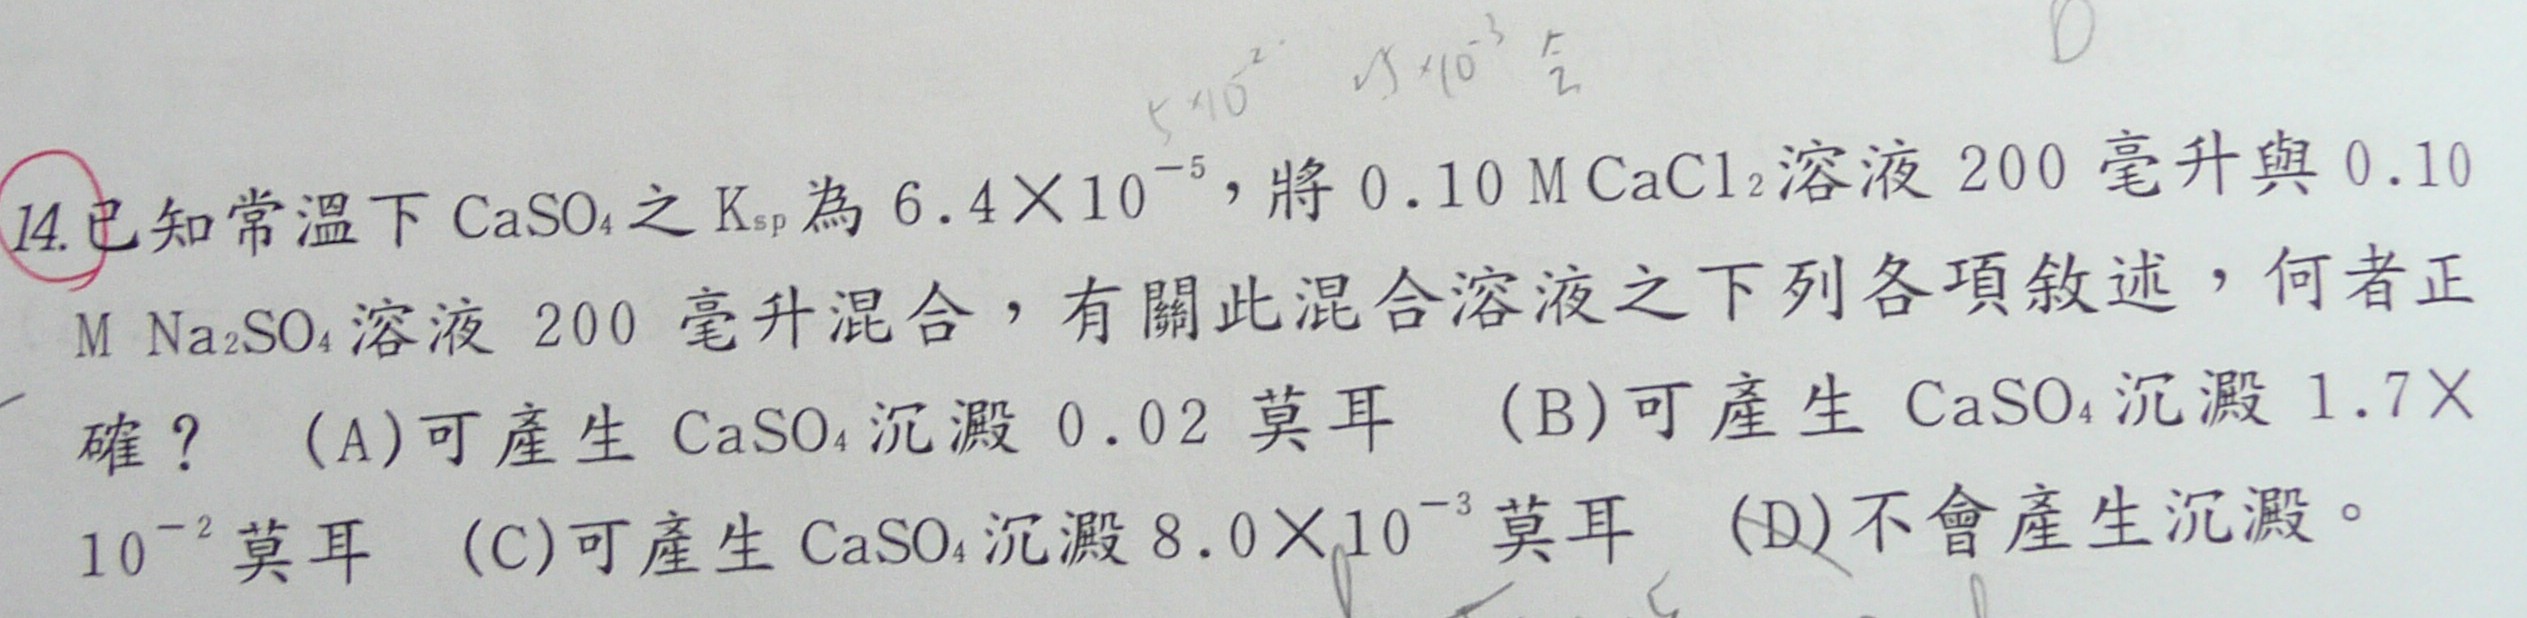 5×10⁻² 5×10⁻³ D
14.已知常溫下 CaSO₄之 Kₛₚ為 6.4×10⁻⁵，將 0.10 M CaCl₂溶液 200 毫升與 0.10
M Na₂SO₄溶液 200 毫升混合，有關此混合溶液之下列各項敘述，何者正
確？ (A)可產生 CaSO₄沉澱 0.02 莫耳 (B)可產生 CaSO₄沉澱 1.7×
10⁻²莫耳 (C)可產生 CaSO₄沉澱 8.0×10⁻³莫耳 (D)不會產生沉澱。